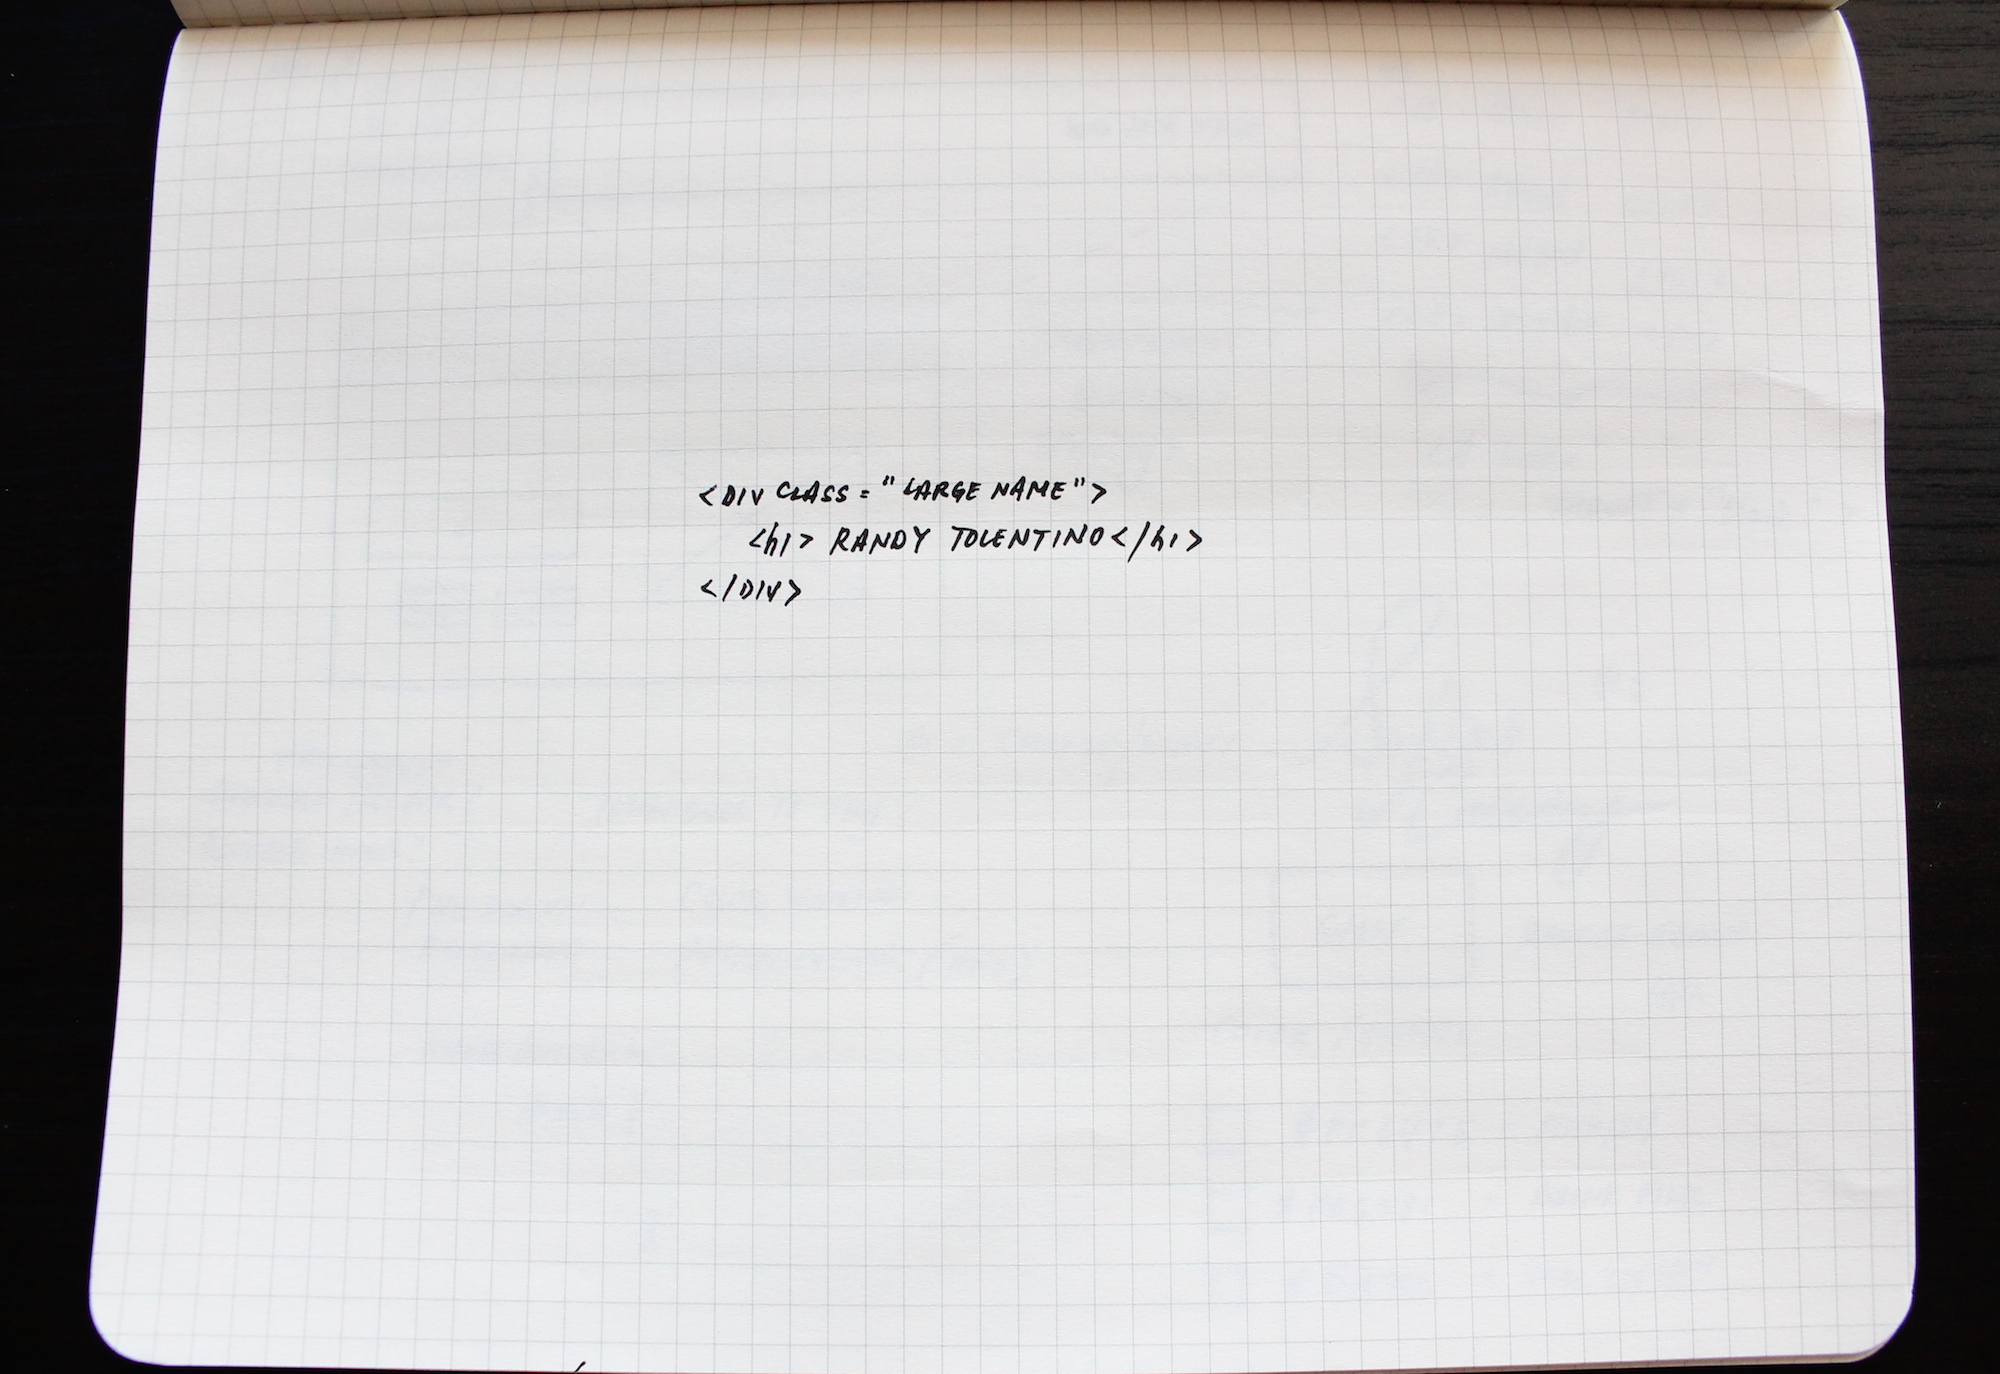 <DIV CLASS = "LARGE NAME">
<h1> RANDY TOLENTINO</h1>
</DIV>